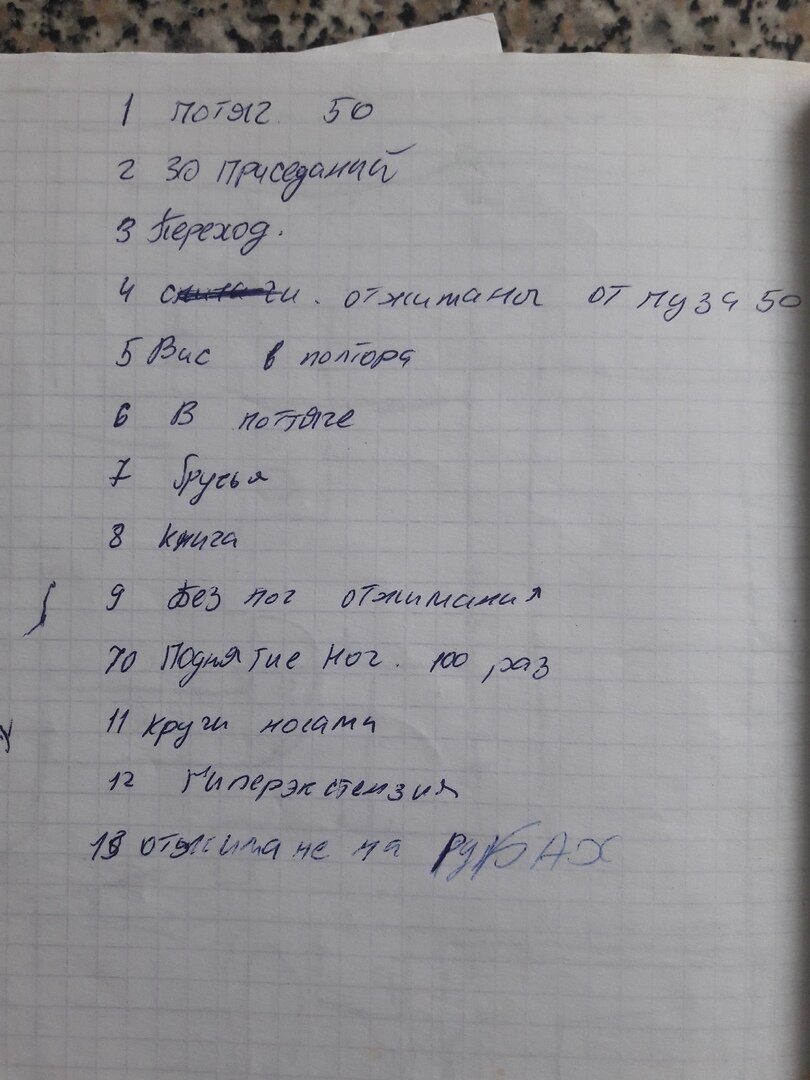 1 потяг. 50
2 30 приседаний
3 Переход.
4 отжиманы от пуза 50
5 Вис в полтора
6 В потяге
7 брусья
8 книга
9 без ног отжимания
10 Поднятие ног. 100 раз
11 круги ногами
12 Гиперэкстензия
13 отжимане на